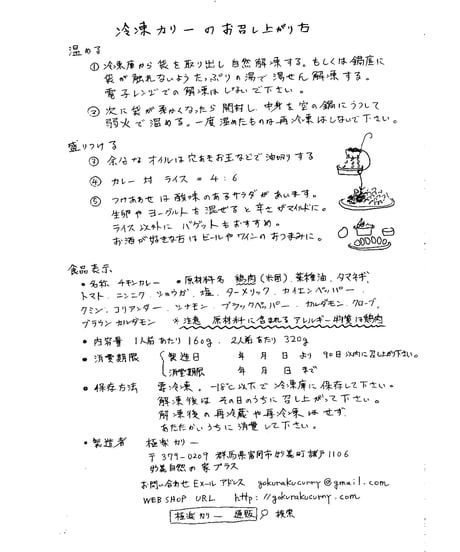 冷凍カリーのお召し上がり方
温める
① 冷凍庫から袋を取り出し自然解凍する。もしくは鍋底に
袋が触れないようたっぷりの湯で湯せん解凍する。
電子レンジでの解凍はしないで下さい。
② 次に袋が柔かくなったら開封し、中身を空の鍋にうつして
弱火で温める。一度温めたものは再冷凍はしないで下さい。
盛りつける
③ 余分なオイルは穴あきお玉などで油切りする
④ カレー対ライス = 4:6
⑤ つけあわせは酸味のあるサラダがあいます。
生卵やヨーグルトを混ぜると辛さがマイルドに。
ライス以外にバゲットもおすすめ。
お酒が好きな方はビールやワインのおつまみに。
食品表示
• 名称 チキンカレー • 原材料名 鶏肉(米国)、菜種油、タマネギ、
トマト、ニンニク、ショウガ、塩、ターメリック、カイエンペッパー、
クミン、コリアンダー、シナモン、ブラックペッパー、カルダモン、クローブ、
ブラウンカルダモン ※注意 原材料に含まれるアレルギー物質は鶏肉
• 内容量 1人前あたり 160g、2人前あたり 320g
• 消費期限 製造日 年 月 日 より 90日以内に召し上がり下さい。
消費期限 年 月 日 まで
• 保存方法 要冷凍。-18℃以下で冷凍庫に保存して下さい。
解凍後はその日のうちに召し上がって下さい。
解凍後の再冷蔵や再冷凍はせず、
あたたかいうちに消費して下さい。
• 製造者 極楽カリー
〒379-0209 群馬県富岡市妙義町諸戸1106
妙義自然の家プラス
お問い合わせEメールアドレス gokurakucurry@gmail.com
WEB SHOP URL http://gokurakucurry.com
極楽カリー 通販 検索